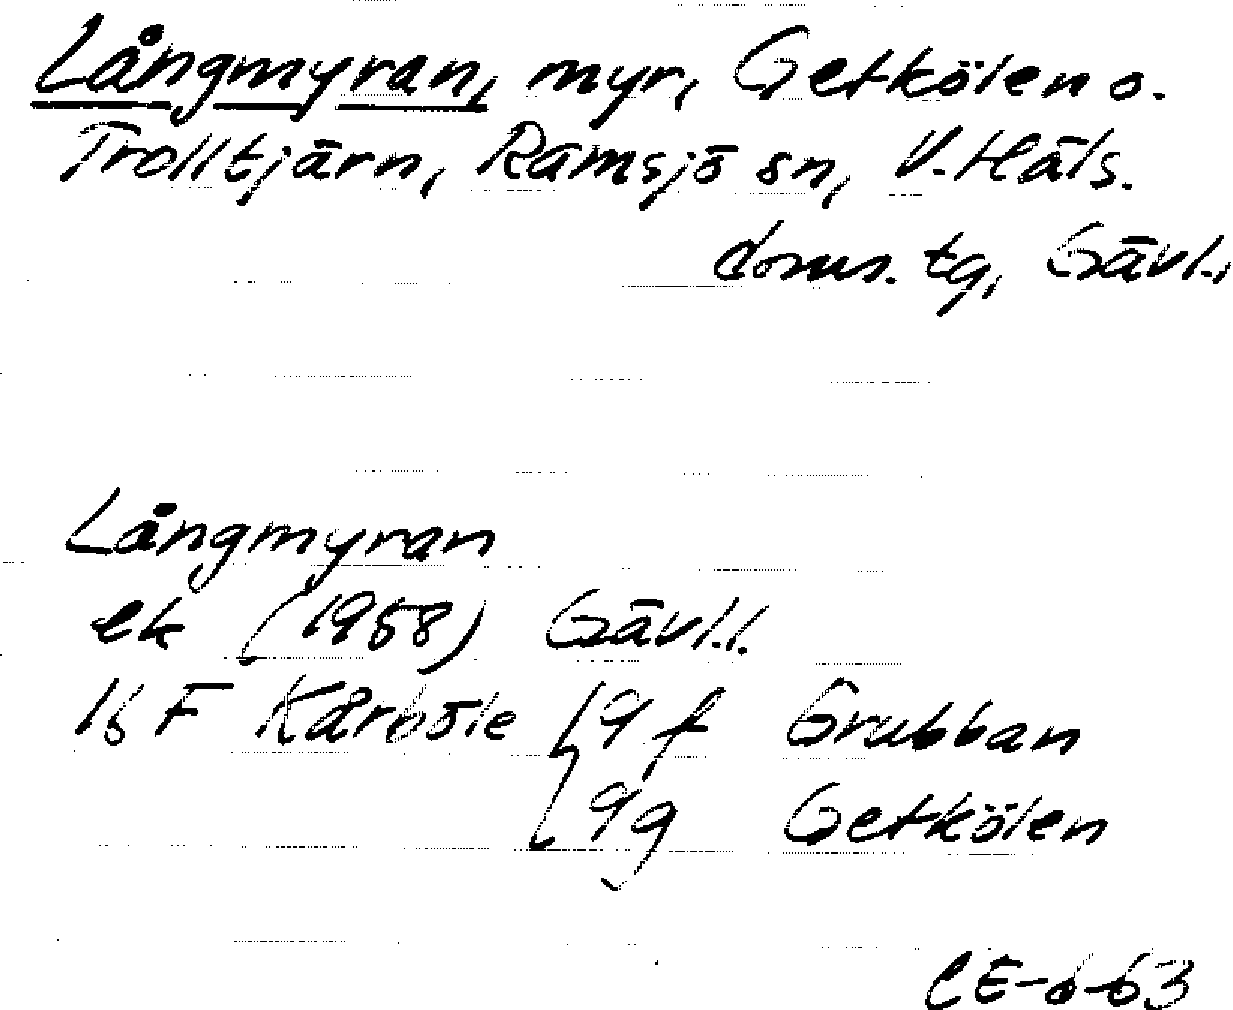 Långmyran, myr, Getkölen o.
Trolltjärn, Ramsjö sn, V. Häls.
doms. tg, Gävl.,
Långmyran
ek (1958) Gävl.l.
16 F Kårböle 9 f Grubban
9g Getkölen
CE-6-63